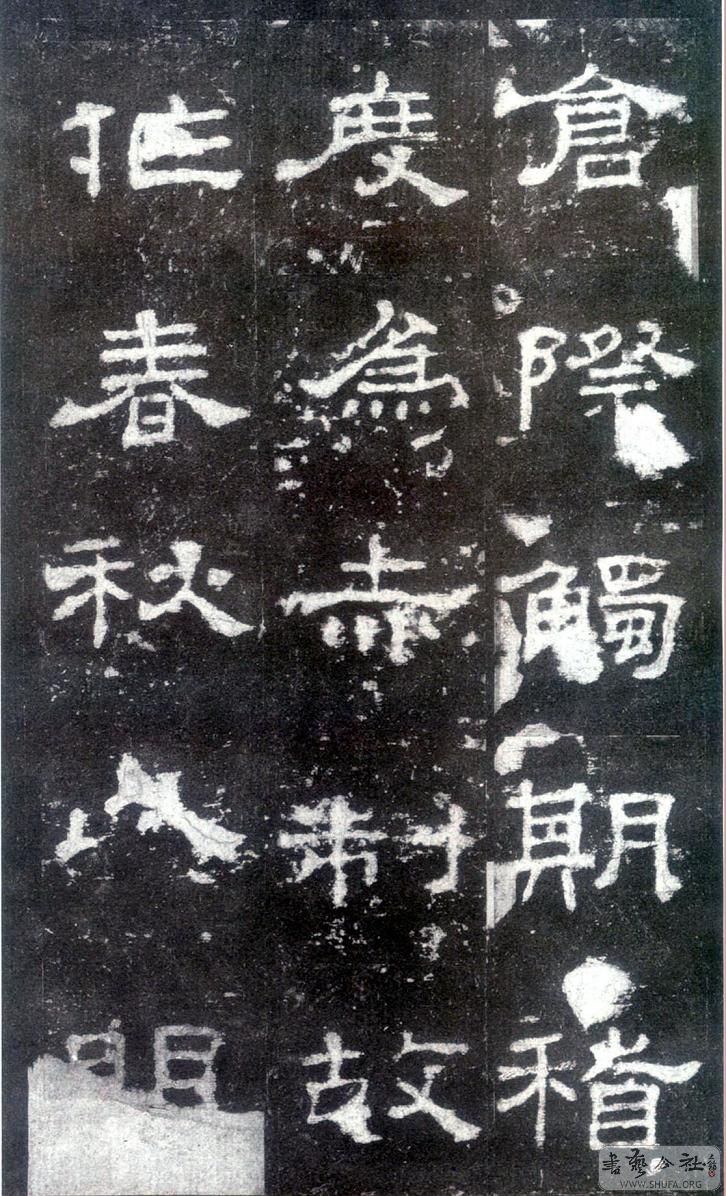 倉際觸期稽
度為赤制故
作春秋以明
書藝公社
WWW.SHUFA.ORG